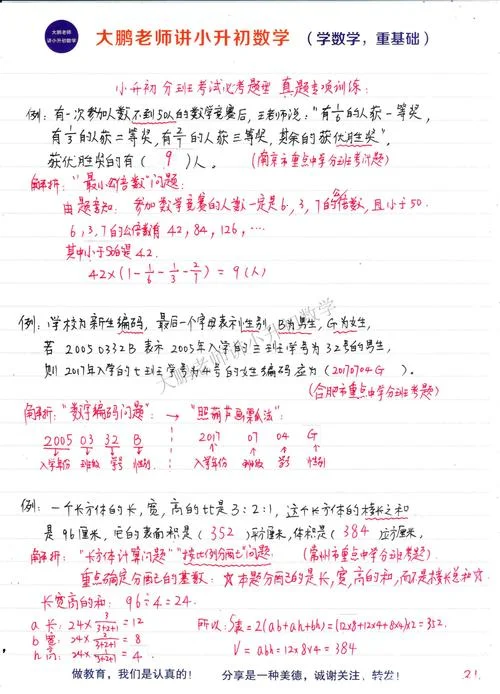 大鹏老师
讲小升初数学
大鹏老师讲小升初数学 (学数学,重基础)
小升初分班考试必考题型 真题专项训练:
例:有一次参加人数不到50人的数学竞赛后,王老师说:"有1/6的人获一等奖,
有1/3的人获二等奖,有2/7的人获三等奖,其余的获优胜奖",
获优胜奖的有( 9 )人。 (南京市重点中学分班考试题)
解析:"最小公倍数"问题:
由题意知: 参加数学竞赛的人数一定是6,3,7的公倍数,且小于50.
6,3,7的公倍数有 42, 84, 126, …
其中小于50的是42.
42×(1-1/6-1/3-2/7) = 9(人)
例:学校为新生编码,最后一个字母表示性别,B为男生,G为女生,
若 20050332B 表示 2005年入学的三班学号为32号的男生,
则2017年入学的七班学号为4号的女生编码应为(20170704G)。
(合肥市重点中学分班考题)
解析:"数字编码问题": → "照葫芦画瓢法":
2005 03 32 B 2017 07 04 G
入学年份 班级 学号 性别 入学年份 班级 学号 性别
例:一个长方体的长,宽,高的比是3:2:1,这个长方体的棱长之和
是96厘米,它的表面积是(352)平方厘米,体积是(384)立方厘米。
解析:"长方体计算问题""按比例分配"问题. (常州市重点中学分班考题)
重点确定分配的基数:☆本题分配的是长,宽,高的和,而不是棱长总和☆
长宽高的和: 96÷4=24.
a 长: 24×3/(3+2+1) = 12 所以: S表=2(ab+ah+bh)=(12×8+12×4+8×4)×2=352.
b 宽: 24×2/(3+2+1) = 8 V = abh = 12×8×4 = 384
h 高: 24×1/(3+2+1) = 4
做教育,我们是认真的! 分享是一种美德,诚谢关注、转发! 21
大鹏老师讲小升初数学